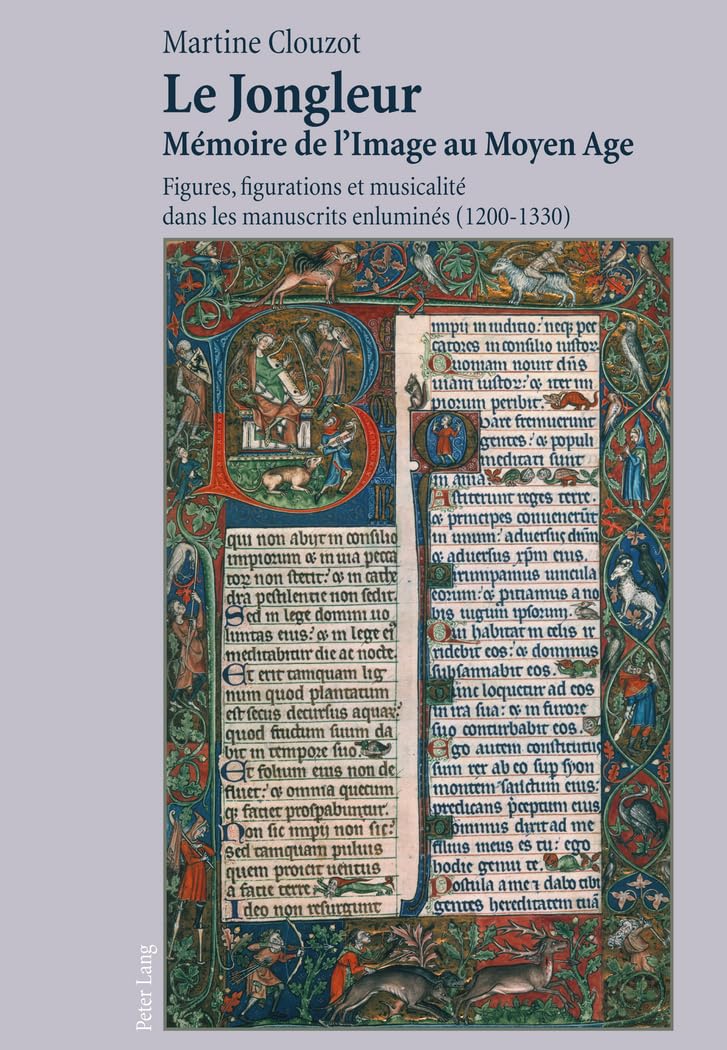 Martine Clouzot
Le Jongleur
Mémoire de l'Image au Moyen Age
Figures, figurations et musicalité
dans les manuscrits enluminés (1200-1330)
B
qui non abijt in consilio
impiorum & in uia pecca
tor non stetit: & in cathe
dra pestilentie non sedit.
Sed in lege domini uo
luntas eius: & in lege ei
meditabitur die ac nocte.
Et erit tamquam lig
num quod plantatum
est secus decursus aquar
quod fructum suum da
bit in tempore suo.
Et folium eius non de
fluet: & omnia quecum
q faciet prosperabuntur.
Non sic impij non sic:
sed tamquam puluis
quem proicit uentus
a facie terre
Ideo non resurgunt
impij in iuditio: neq pec
catores in consilio iustor
Quoniam nouit dñs
uiam iustor: & iter im
piorum peribit.
Quare fremuerunt
gentes: & populi
meditati sunt
in ania.
Astiterunt reges terre
& principes conuenerũt
in unum: aduersus dñm
& aduersus xp̃m eius.
Dirumpamus uincula
eorum: & proiciamus a no
bis iugum ipsorum.
Qui habitat in celis ir
ridebit eos: & dominus
subsannabit eos.
Tunc loquetur ad eos
in ira sua: & in furore
suo conturbabit eos.
Ego autem constitutus
sum rex ab eo sup syon
montem sanctum eius:
predicans p̃ceptum eius
Dominus dixit ad me
filius meus es tu: ego
hodie genui te.
Postula a me & dabo tibi
gentes hereditatem tuã
Peter Lang